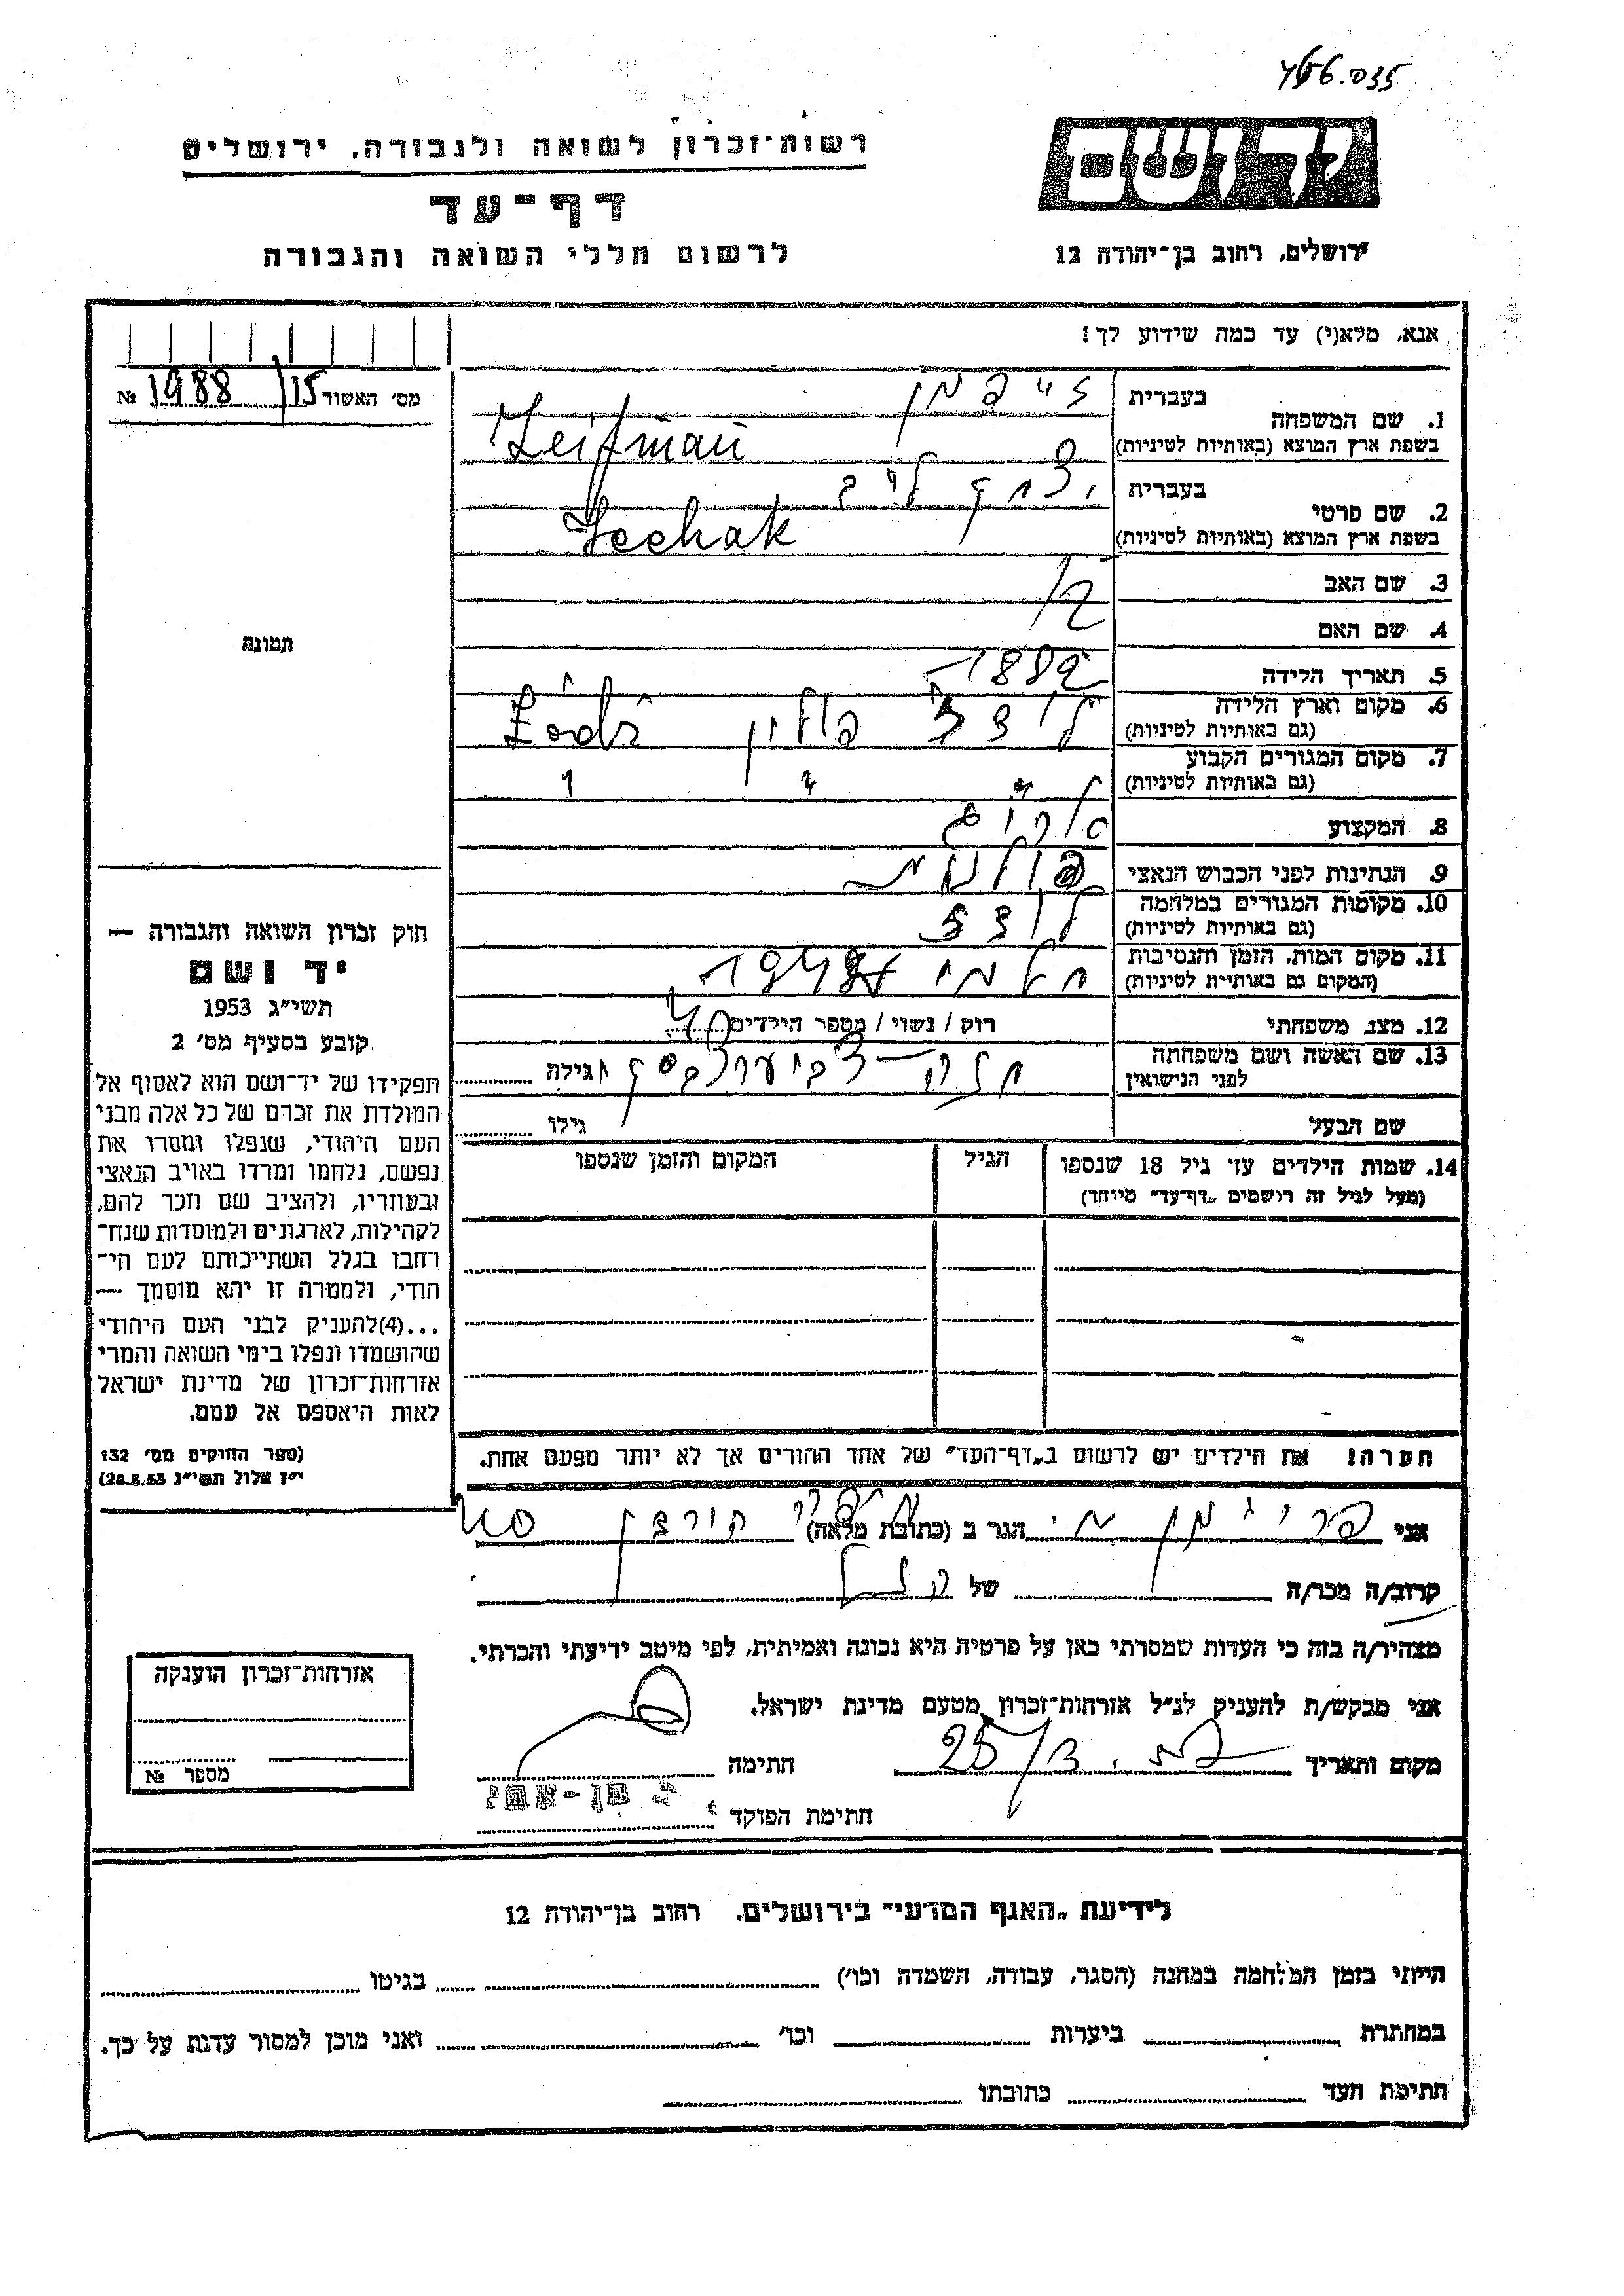 466.035
רשות־זכרון לשואה ולגבורה, ירושלים
דף־עד
לרשום חללי השואה והגבורה
יד ושם
ירושלים, רחוב בן־יהודה 12
אנא, מלא(י) עד כמה שידוע לך!
מס' האשור 15/1988 №
תמונה
1. שם המשפחה
בעברית זייפמן
בשפת ארץ המוצא (באותיות לטיניות) Zeifman
2. שם פרטי
בעברית יצחק לייב
בשפת ארץ המוצא (באותיות לטיניות) Icchak
3. שם האב
4. שם האם
5. תאריך הלידה 1882
6. מקום וארץ הלידה
(גם באותיות לטיניות) לודז פולין Łódź
7. מקום המגורים הקבוע
(גם באותיות לטיניות) " " "
8. המקצוע
9. הנתינות לפני הכבוש הנאצי פולנית
10. מקומות המגורים במלחמה
(גם באותיות לטיניות) לודז
11. מקום המות, הזמן והנסיבות
(המקום גם באותיות לטיניות)
12. מצב משפחתי רוק / נשוי / מספר הילדים
13. שם האשה ושם משפחתה
לפני הנישואין חנה גילה
שם הבעל גילו
14. שמות הילדים עד גיל 18 שנספו
(מעל לגיל זה רושמים "דף־עד" מיוחד)
הגיל
המקום והזמן שנספו
הערה! את הילדים יש לרשום ב"דף־העד" של אחד ההורים אך לא יותר מפעם אחת.
חוק זכרון השואה והגבורה —
יד ושם
תשי"ג 1953
קובע בסעיף מס' 2
תפקידו של יד־ושם הוא לאסוף אל
המולדת את זכרם של כל אלה מבני
העם היהודי, שנפלו ומסרו את
נפשם, נלחמו ומרדו באויב הנאצי
ובעוזריו, ולהציב שם וזכר להם,
לקהילות, לארגונים ולמוסדות שנח־
רחבו בגלל השתייכותם לעם הי־
הודי, ולמטרה זו יהא מוסמך —
...(4)להעניק לבני העם היהודי
שהושמדו ונפלו בימי השואה והמרי
אזרחות־זכרון של מדינת ישראל
לאות היאספם אל עמם.
(ספר החוקים מס' 132
י"ז אלול תשי"ג 28.8.53)
אני פרידמן הגר ב (כתובת מלאה)
קרוב/ה מכר/ה של
מצהיר/ה בזה כי העדות שמסרתי כאן על פרטיה היא נכונה ואמיתית, לפי מיטב ידיעתי והכרתי.
אני מבקש/ת להעניק לנ"ל אזרחות־זכרון מטעם מדינת ישראל.
מקום ותאריך 25/3 חתימה
חתימת הפוקד
אזרחות־זכרון הוענקה
מספר №
לידיעת "האגף המדעי" בירושלים, רחוב בן־יהודה 12
הייתי בזמן המלחמה במחנה (הסגר, עבודה, השמדה וכו') בגיטו
במחתרת ביערות וכו' ואני מוכן למסור עדות על כך.
חתימת העד כתובתו